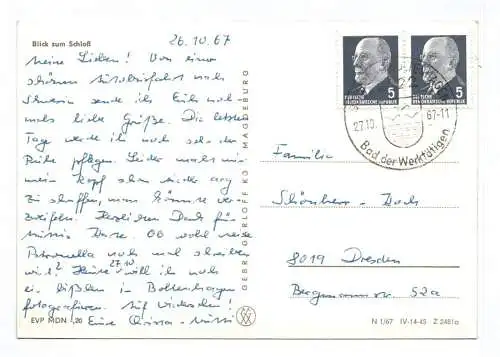 Blick zum Schloß
26.10.67
Meine Lieben! Von einer
schönen Autobusfahrt nach
Schwerin sende ich Euch noch-
mals liebe Grüße. Die letzten
Tage werde ich noch sehr der
Ruhe pflegen. Leider macht mir
mein Kopf schon wieder arg
zu schaffen, man könnte ver-
zweifeln. Herzlichen Dank für
Ob wohl
Petronella noch mal schreiben
wird? Heute 27.10. will ich noch
ein bißchen in Boltenhagen
fotografieren. Auf Wiedersehen!
Eure
EVP MDN -,20
GEBR. GARLOFF KG MAGDEBURG
DEUTSCHE
DEMOKRATISCHE REPUBLIK
5
DEUTSCHE
DEMOKRATISCHE REPUBLIK
5
27.10. 67-11
Bad der Werktätigen
Familie
Schönherr-Dach
8019 Dresden
Bergmannstr. 52a
N 1/67 IV-14-45 Z 2481a